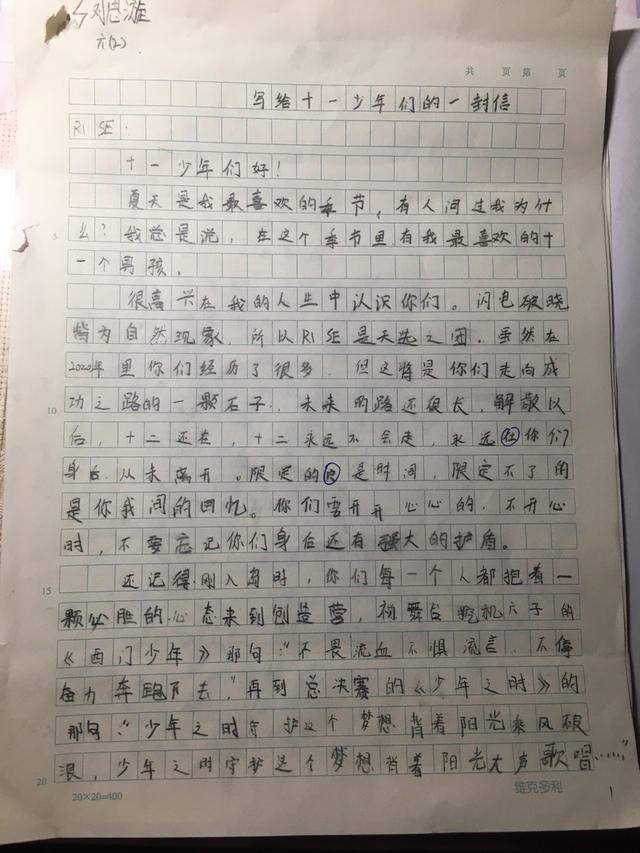 刘思漩
六(2)
共 页 第 页
写给十一少年们的一封信
R1SE:
十一少年们好!
夏天是我最喜欢的季节,有人问过我为什
5
么?我总是说,在这个季节里有我最喜欢的十
一个男孩.
很高兴在我的人生中认识你们。闪电破晓
皆为自然现象,所以R1SE是天选之团.虽然在
2020年里你们经历了很多,但这将是你们走向成
10
功之路的一颗石子.未来的路还很长,解散以
后,十二还在,十二永远不会走,永远在你们
身后.从未离开。限定的只是时间,限定不了的
是你我间的回忆。你们要开开心心的.不开心
时,不要忘记你们身后还有强大的护盾。
15
还记得刚入岛时,你们每一个人都抱着一
颗必胜的心态来到创造营,初舞台挖机六子的
《西门少年》那句:“不畏流血不惧流言.不停
奋力奔跑下去,”再到总决赛的《少年之时》的
那句:“少年之时守护这个梦想背着阳光乘风破
20
浪,少年之时守护这个梦想背着阳光大声歌唱……”
20×20=400
维克多利
1